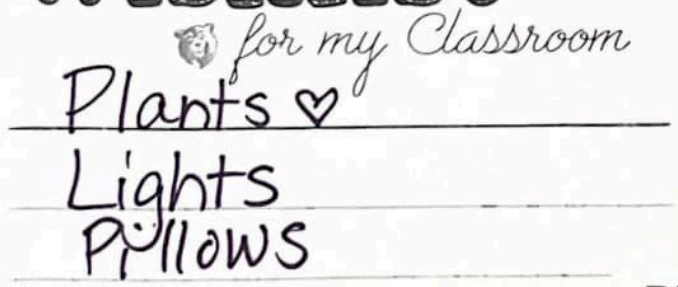 for my Classroom
Plants ♡
Lights
Pillows